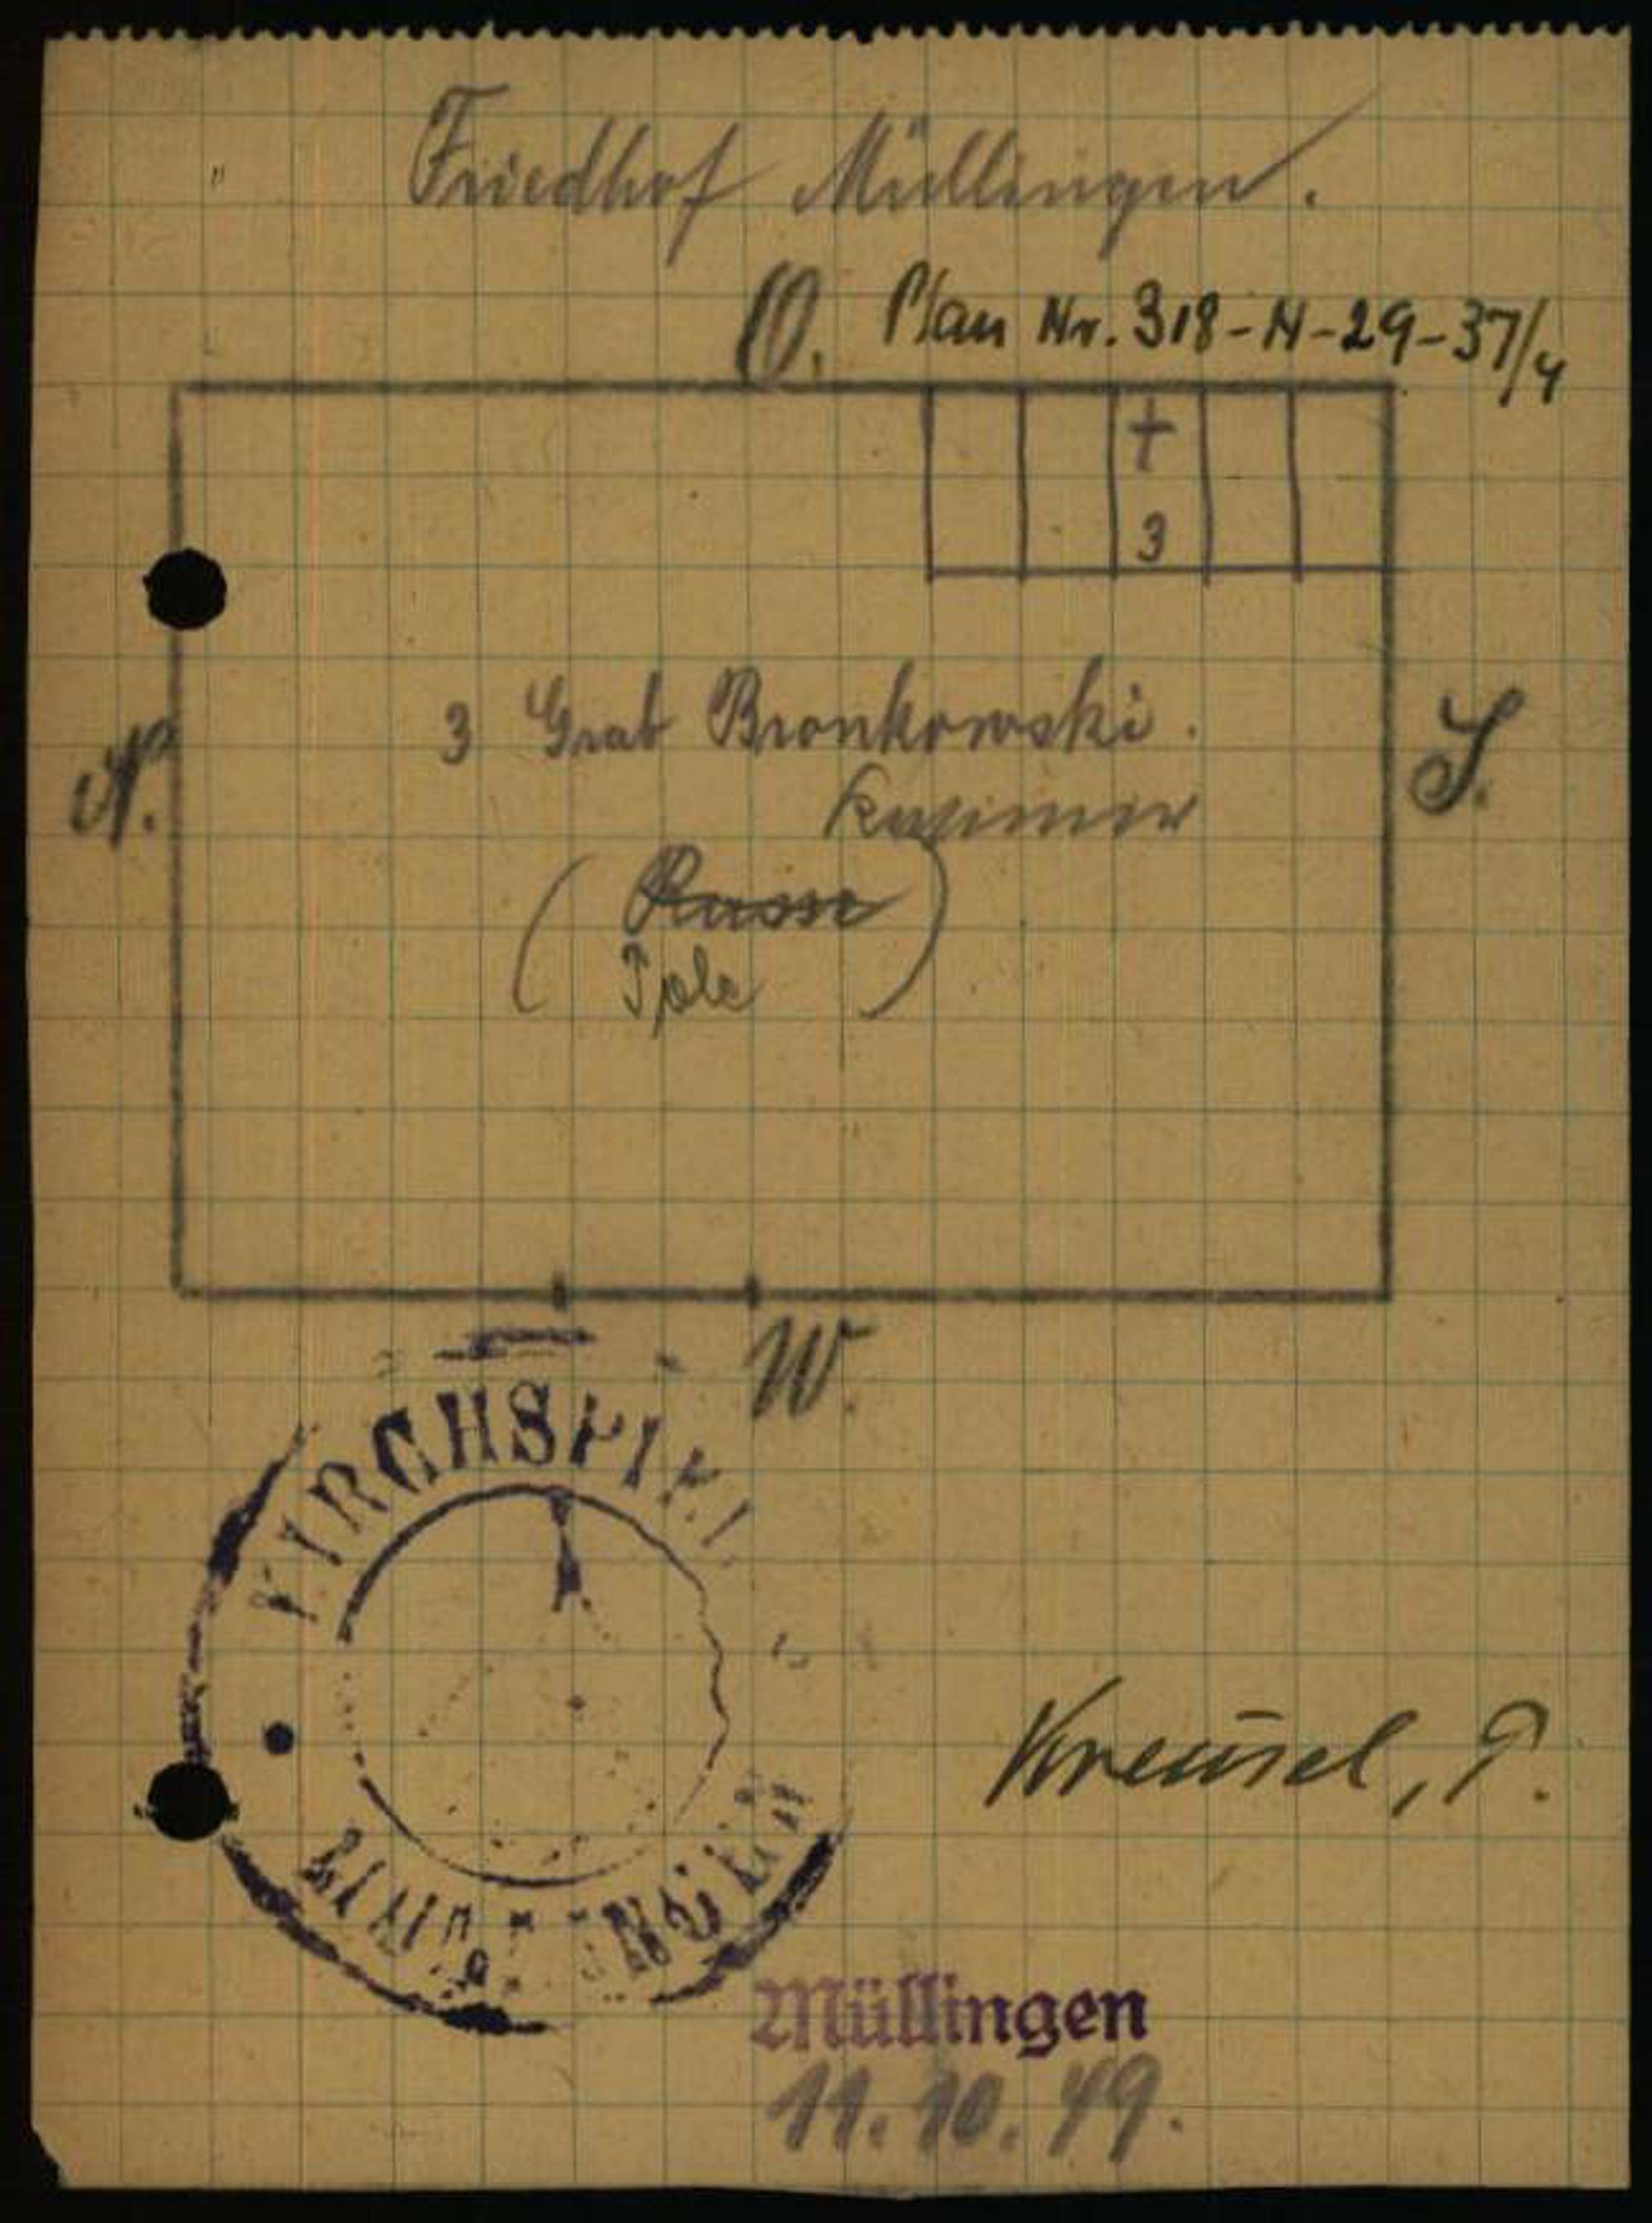 Friedhof Müllingen.
O. Plan Nr. 318-N-29-37/4
+
3
3 Grab Bronkowski.
Kasimir
N.
S.
(Russe)
Pole
W.
KIRCHSPIEL
Kreusel, P.
Müllingen
11.10.49.